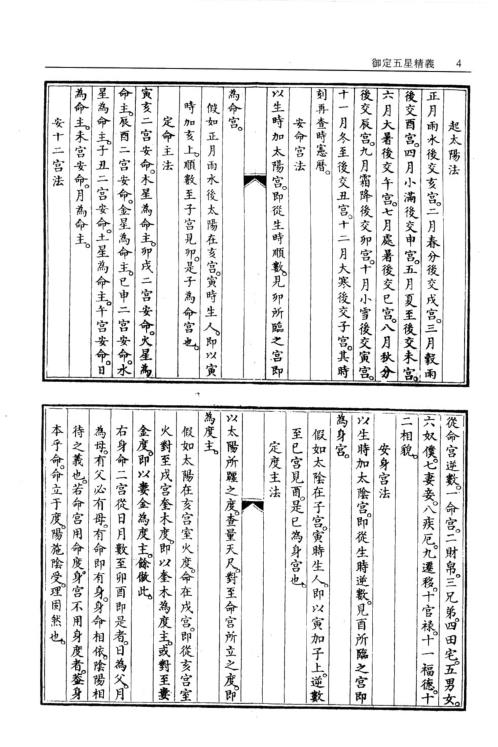 御定五星精義　4
起太陽法
正月雨水後交亥宮。二月春分後交戌宮。三月穀雨
後交酉宮。四月小滿後交申宮。五月夏至後交未宮。
六月大暑後交午宮。七月處暑後交巳宮。八月秋分
後交辰宮。九月霜降後交卯宮。十月小雪後交寅宮。
十一月冬至後交丑宮。十二月大寒後交子宮。其時
刻再查時憲曆。
安命宮法
以生時加太陽宮。即從生時順數。見卯所臨之宮即
為命宮。
假如正月雨水後太陽在亥宮。寅時生人。即以寅
時加亥上。順數至子宮見卯。是子為命宮也。
定命主法
寅亥二宮安命。木星為命主。卯戌二宮安命。火星為
命主。辰酉二宮安命。金星為命主。巳申二宮安命。水
星為命主。子丑二宮安命。土星為命主。午宮安命。日
為命主。未宮安命。月為命主。
安十二宮法
從命宮逆數。一命宮。二財帛。三兄弟。四田宅。五男女。
六奴僕。七妻妾。八疾厄。九遷移。十官祿。十一福德。十
二相貌。
安身宮法
以生時加太陰宮。即從生時逆數。見酉所臨之宮即
為身宮。
假如太陰在子宮。寅時生人。即以寅加子上。逆數
至巳宮見酉。是巳為身宮也。
定度主法
以太陽所躔之度。查量天尺。對至命宮所立之度。即
為度主。
假如太陽在亥宮室火度。命在戌宮。即從亥宮室
火對至戌宮奎木度。即以奎木為度主。或對至婁
金度。即以婁金為度主。餘倣此。
右身命二宮從日月數至卯酉即是者。日為父。月
為母。有父必有母。有命即有身。身命相依。陰陽相
待之義也。若命宮用命度。身宮不用身度者。蓋身
本乎命。命立于度。陽施陰受。理固然也。